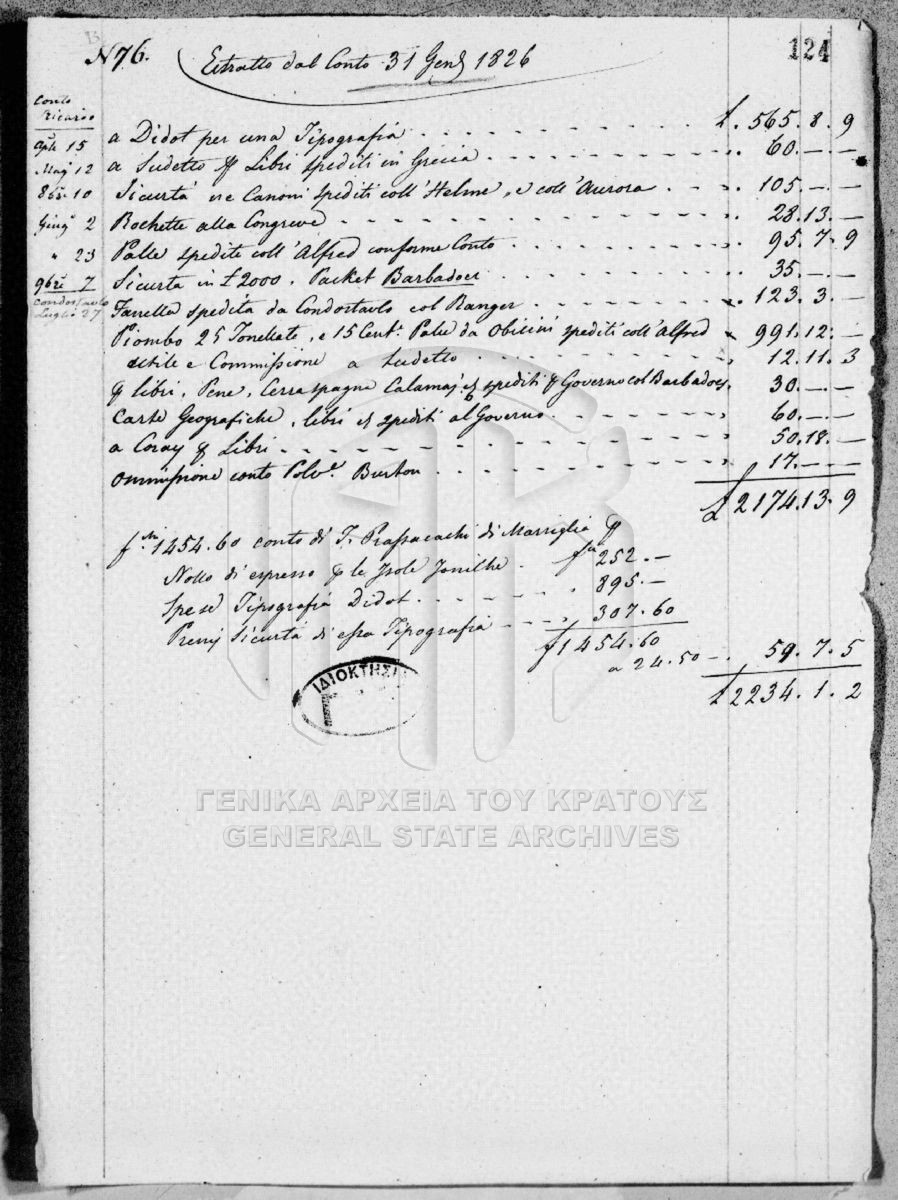 N 76. Estratto dal Conto 31 Gen 1826
124
Conto
Ricardo
Aple 15 a Didot per una Tipografia £. 565. 8. 9
Mag 12 a Sudetto Libri spediti in Grecia 60. — —
8bre 10 Sicurtá re Canoni spediti coll'Helme, e coll'Aurora 105. — —
Giug 2 Rochette alla Congreve 28. 13. —
" 23 Palle spedite coll'Alfred conforme Conto 95. 7. 9
9bre 7 Sicurta in £2000. Packet Barbadoes 35. — —
Condostavlo
Luglio 27 spedita da Condostavlo col Ranger 123. 3. —
Piombo 25 Tonellate, e 15 Cent. Palle da Obicini spediti coll'Alfred 991. 12. —
e Commissione a Sudetto 12. 11. 3
libri, Pene, Ceraspagne Calamaj spediti Governo col Barbadoes 30. — —
Carte Geografiche, libri spediti al Governo 60. — —
a Coray Libri 50. 18. —
Ommissione conto Polv. Burton 17. — —
£ 2174. 13. 9
f. 1454. 60 conto di di Marsiglia
Nollo di espresso le Isole Jonilhe f 252. —
Spese Tipografia Didot 895. —
Premj Sicurta di essa Tipografia 307. 60
f 1454. 60
a 24. 50 — 59. 7. 5
£ 2234. 1. 2
ΙΔΙΟΚΤΗΣΙ
Γ
ΓΕΝΙΚΑ ΑΡΧΕΙΑ ΤΟΥ ΚΡΑΤΟΥΣ
GENERAL STATE ARCHIVES